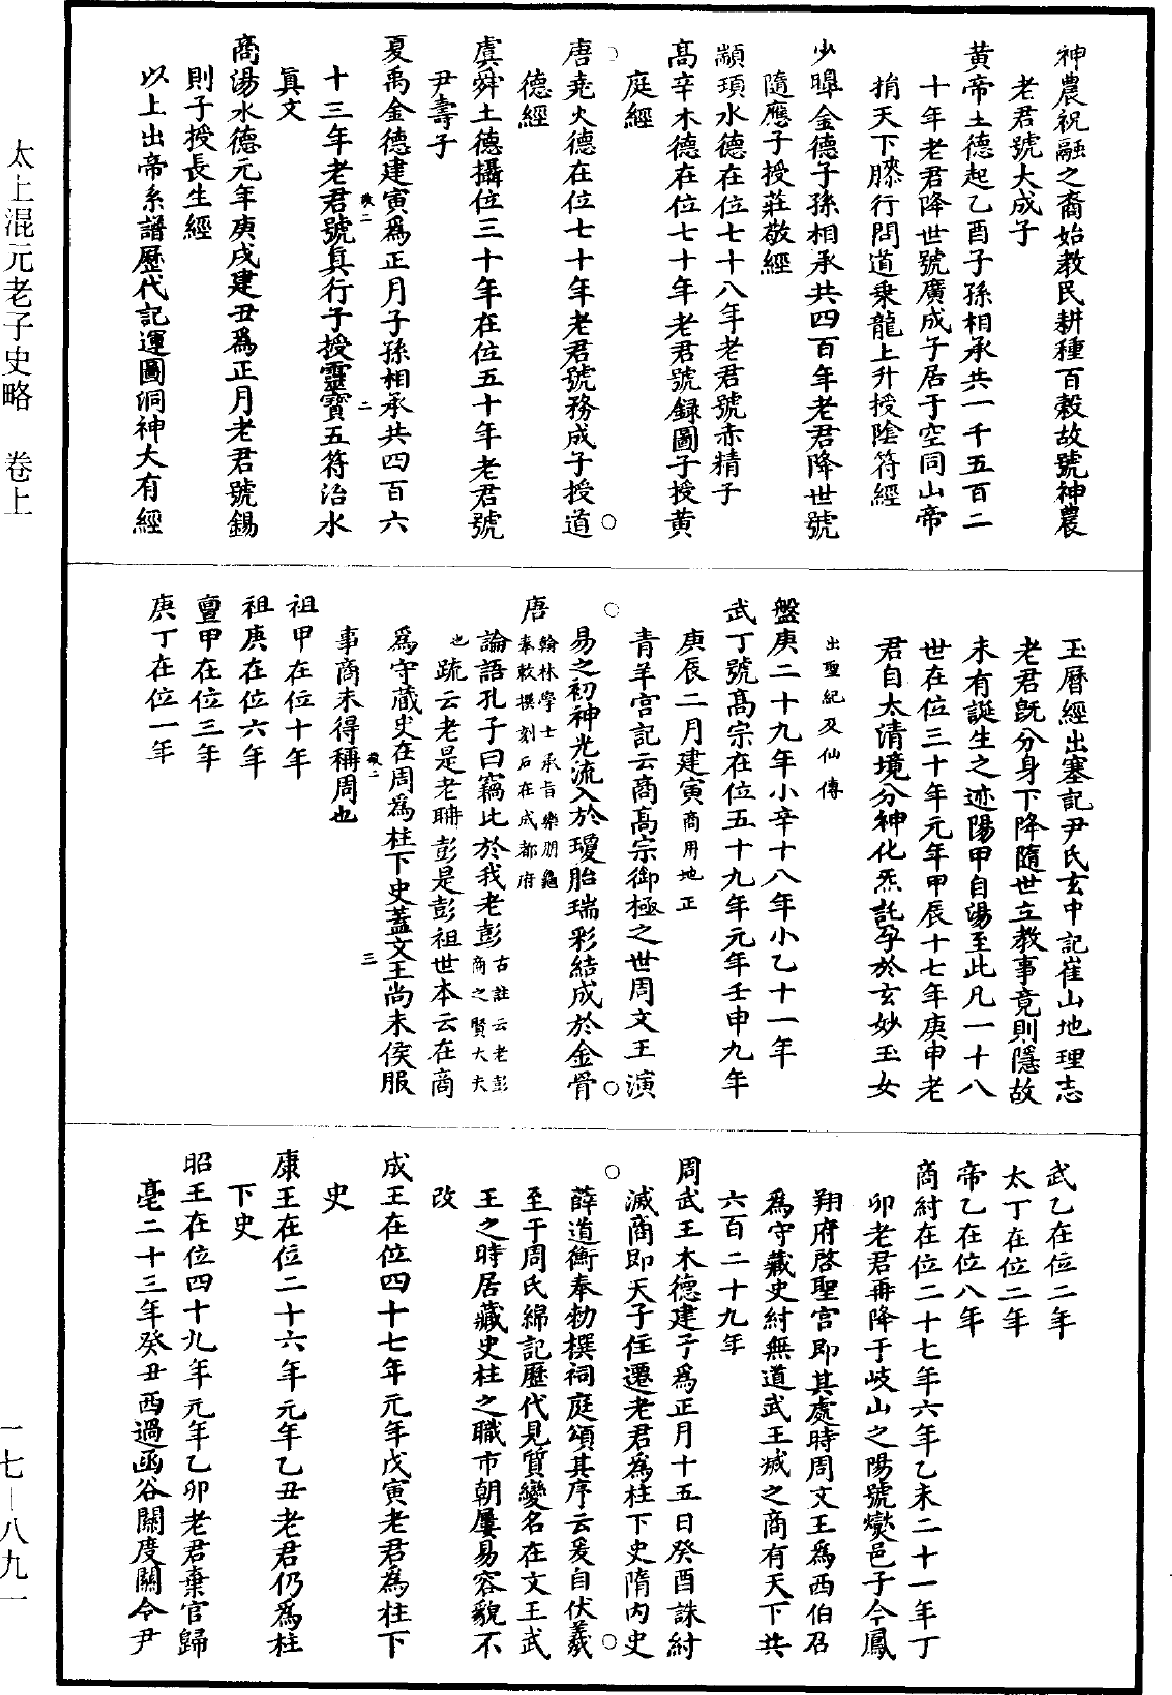 神農祝融之裔始教民耕種百穀故號神農
老君號大成子
黃帝土德起乙酉子孫相承共一千五百二
十年老君降世號廣成子居于空同山帝
捐天下膝行問道乗龍上升授陰符經
少皡金德子孫相承共四百年老君降世號
隨應子授莊敬經
顓頊水德在位七十八年老君號赤精子
髙辛木德在位七十年老君號録圖子授黃
庭經
唐堯火德在位七十年老君號務成子授道
德經
虞舜土德攝位三十年在位五十年老君號
尹壽子
夏禹金德建寅爲正月子孫相承共四百六
十三年老君號眞行子授靈寳五符治水
眞文
商湯水德元年庚戌建丑爲正月老君號錫
則子授長生經
以上出帝系譜歷代記運圖洞神大有經
玉曆經出塞記尹氏玄中記崔山地理志
老君旣分身下降隨世立教事竟則隱故
未有誕生之迹陽甲自湯至此凡一十八
世在位三十年元年甲辰十七年庚申老
君自太清境分神化炁託孕於玄妙玉女
出聖紀及仙傳
盤庚二十九年小辛十八年小乙十一年
武丁號髙宗在位五十九年元年壬申九年
庚辰二月建寅商用地正
青羊宫記云商髙宗御極之世周文王演
易之初神光流入於瓊胎瑞彩結成於金骨
唐翰林學士承旨樂朋龜
奉敕撰刻石在成都府
論語孔子曰竊比於我老彭古註云老彭
商之賢大夫
也疏云老是老聃彭是彭祖世本云在商
爲守蔵史在周爲柱下史蓋文王尚未侯服
事商未得稱周也
祖甲在位十年
祖庚在位六年
亶甲在位三年
庚丁在位一年
武乙在位二年
太丁在位二年
帝乙在位八年
商紂在位二十七年六年乙未二十一年丁
卯老君再降于岐山之陽號爕邑子今鳳
翔府啓聖宫即其處時周文王爲西伯召
爲守藏史紂無道武王㓕之商有天下共
六百二十九年
周武王木德建子爲正月十五日癸酉誅紂
滅商即天子位遷老君爲柱下史隋内史
薛道衡奉勑撰祠庭頌其序云爰自伏羲
至于周氏綿記歷代見質變名在文王武
王之時居藏史柱之職市朝屢易容貌不
改
成王在位四十七年元年戊寅老君爲柱下
史
康王在位二十六年元年乙丑老君仍爲柱
下史
昭王在位四十九年元年乙卯老君棄官歸
亳二十三年癸丑西過函谷關度關令尹
太上混元老子史略　卷上
一七—八九一